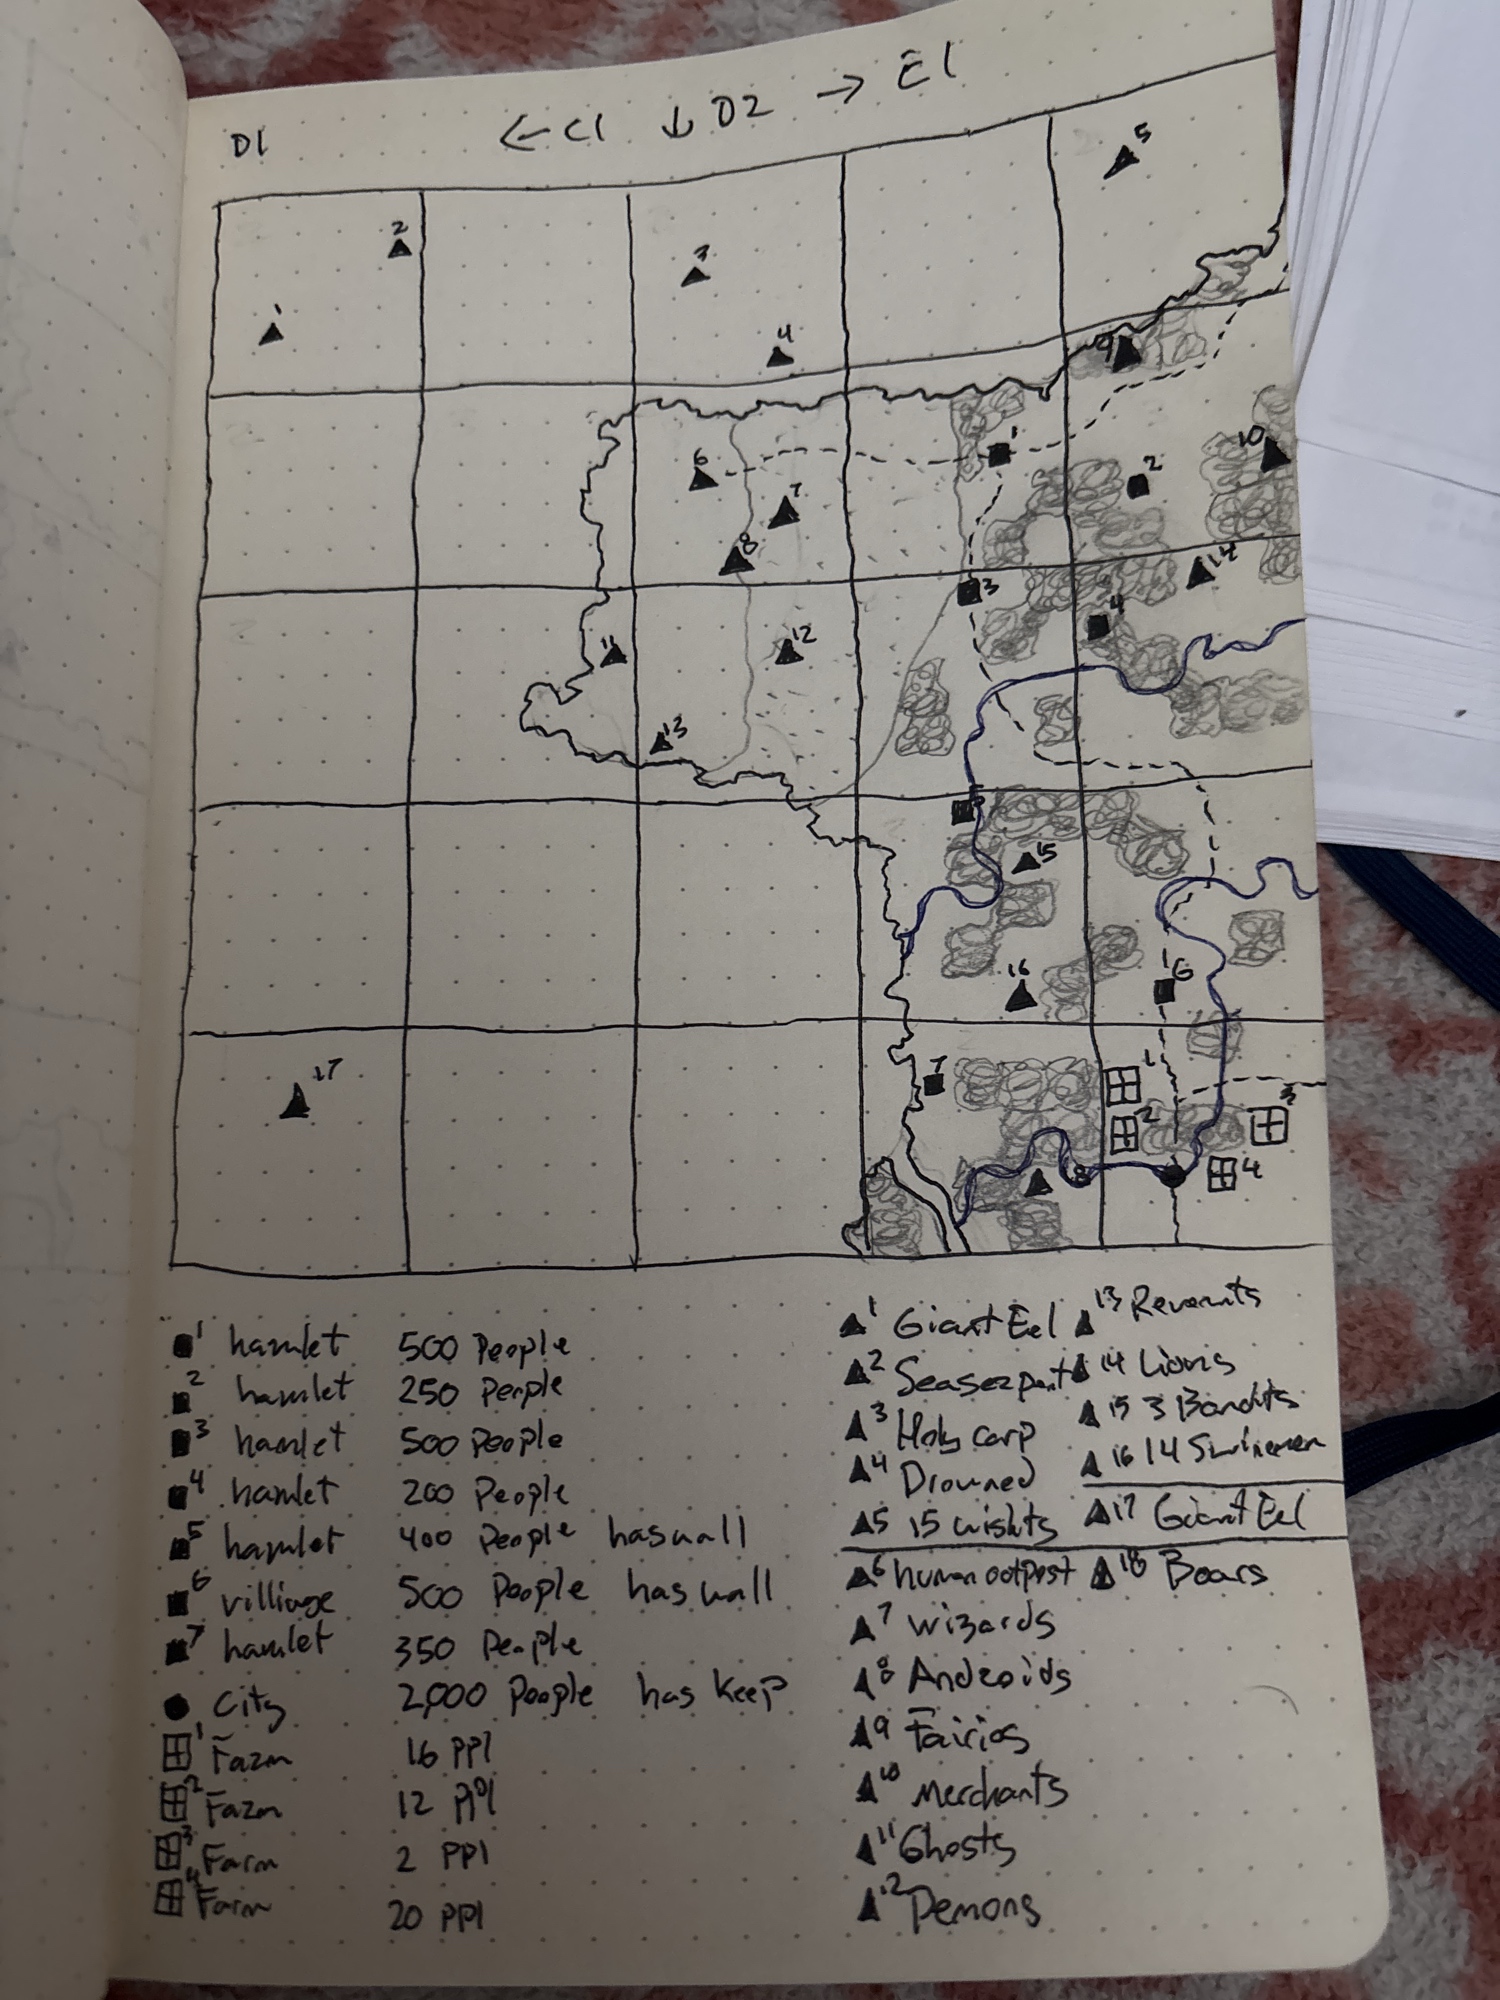 D1 ← C1 ↓ D2 → E1
5
2
3
1
4
9
1
10
6
2
7
8
14
3
4
12
11
13
5
15
16
6
17
7
1
2
3
4
8
■1 hamlet 500 People
■2 hamlet 250 People
■3 hamlet 500 People
■4 hamlet 200 People
■5 hamlet 400 People has wall
■6 villiage 500 People has wall
■7 hamlet 350 People
● City 2,000 People has Keep
1 Farm 16 PPl
2 Farm 12 PPl
3 Farm 2 PPl
4 Farm 20 PPl
▲1 Giant Eel
▲2 Seaserpant
▲3 Holy carp
▲4 Drowned
▲5 15 wights
▲6 human outpost
▲7 Wizards
▲8 Androids
▲9 Fairies
▲10 Merchants
▲11 Ghosts
▲12 Demons
▲13 Revenants
▲14 Lions
▲15 3 Bandits
▲16 14 Swinemen
▲17 Giant Eel
▲18